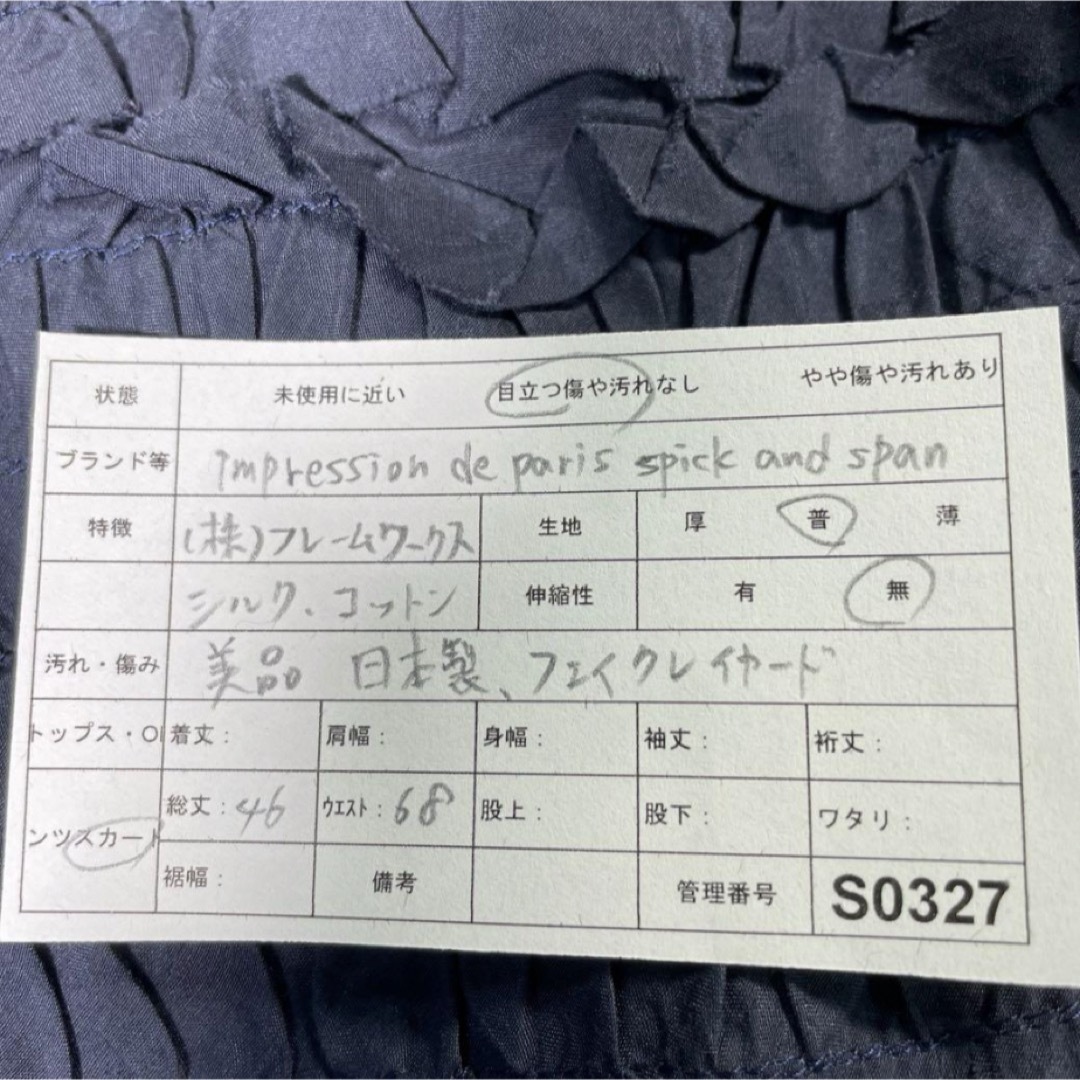 状態 未使用に近い 目立つ傷や汚れなし やや傷や汚れあり
ブランド等 impression de paris spick and span
特徴 (株)フレームワークス 生地 厚 普 薄
シルク、コットン 伸縮性 有 無
汚れ・傷み 美品 日本製、フェイクレイヤード
トップス・O 着丈: 肩幅: 身幅: 袖丈: 裄丈:
ンツスカート 総丈:46 ウエスト:68 股上: 股下: ワタリ:
裾幅: 備考 管理番号 S0327